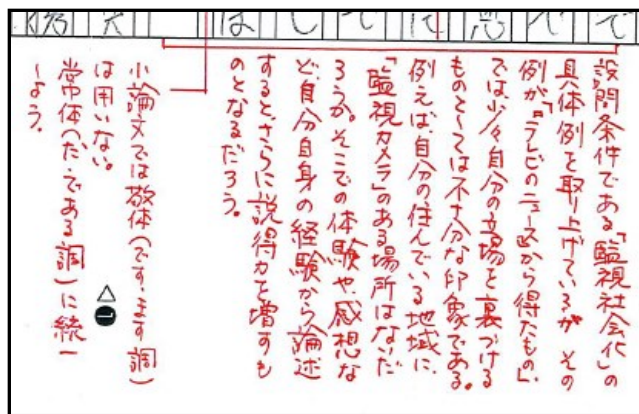 設問条件である「監視社会化」の
具体例を取り上げているが、その
例が「『テレビのニュース』から得たもの」
では少々自分の立場を裏づける
ものとしては不十分な印象である。
例えば、自分の住んでいる地域に、
「監視カメラ」のある場所はないだ
ろうか。そこでの体験や、感想な
ど、自分自身の経験から論述
すると、さらに説得力を増すも
のとなるだろう。
小論文では敬体(です、ます調)
は用いない。
常体(だ・である調)に統一
しよう。